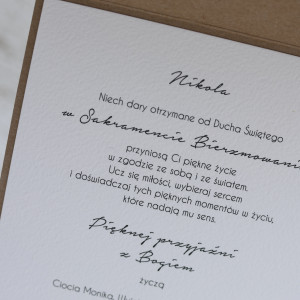 Nikola
Niech dary otrzymane od Ducha Świętego
w Sakramencie Bierzmowania
przyniosą Ci piękne życie
w zgodzie ze sobą i ze światem.
Ucz się miłości, wybieraj sercem
i doświadczaj tych pięknych momentów w życiu,
które nadają mu sens.
Pięknej przyjaźni
z Bogiem
życzą
Ciocia Monika,